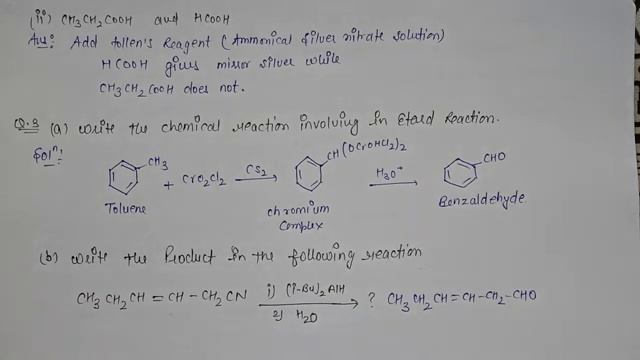 (ii) CH3CH2COOH and HCOOH
Ans: Add tollen's Reagent (Ammonical silver nitrate solution)
HCOOH gives mirror silver while
CH3CH2COOH does not.
Q.3 (a) write the chemical reaction involving in Etard Reaction.
Solⁿ:
CH3 + CrO2Cl2 CS2 CH(OCrOHCl2)2 H3O⁺ CHO
Toluene chromium Complex Benzaldehyde
(b) write the Product in the following reaction
CH3CH2CH=CH-CH2CN i) (i-Bu)2AlH 2) H2O ? CH3CH2CH=CH-CH2-CHO